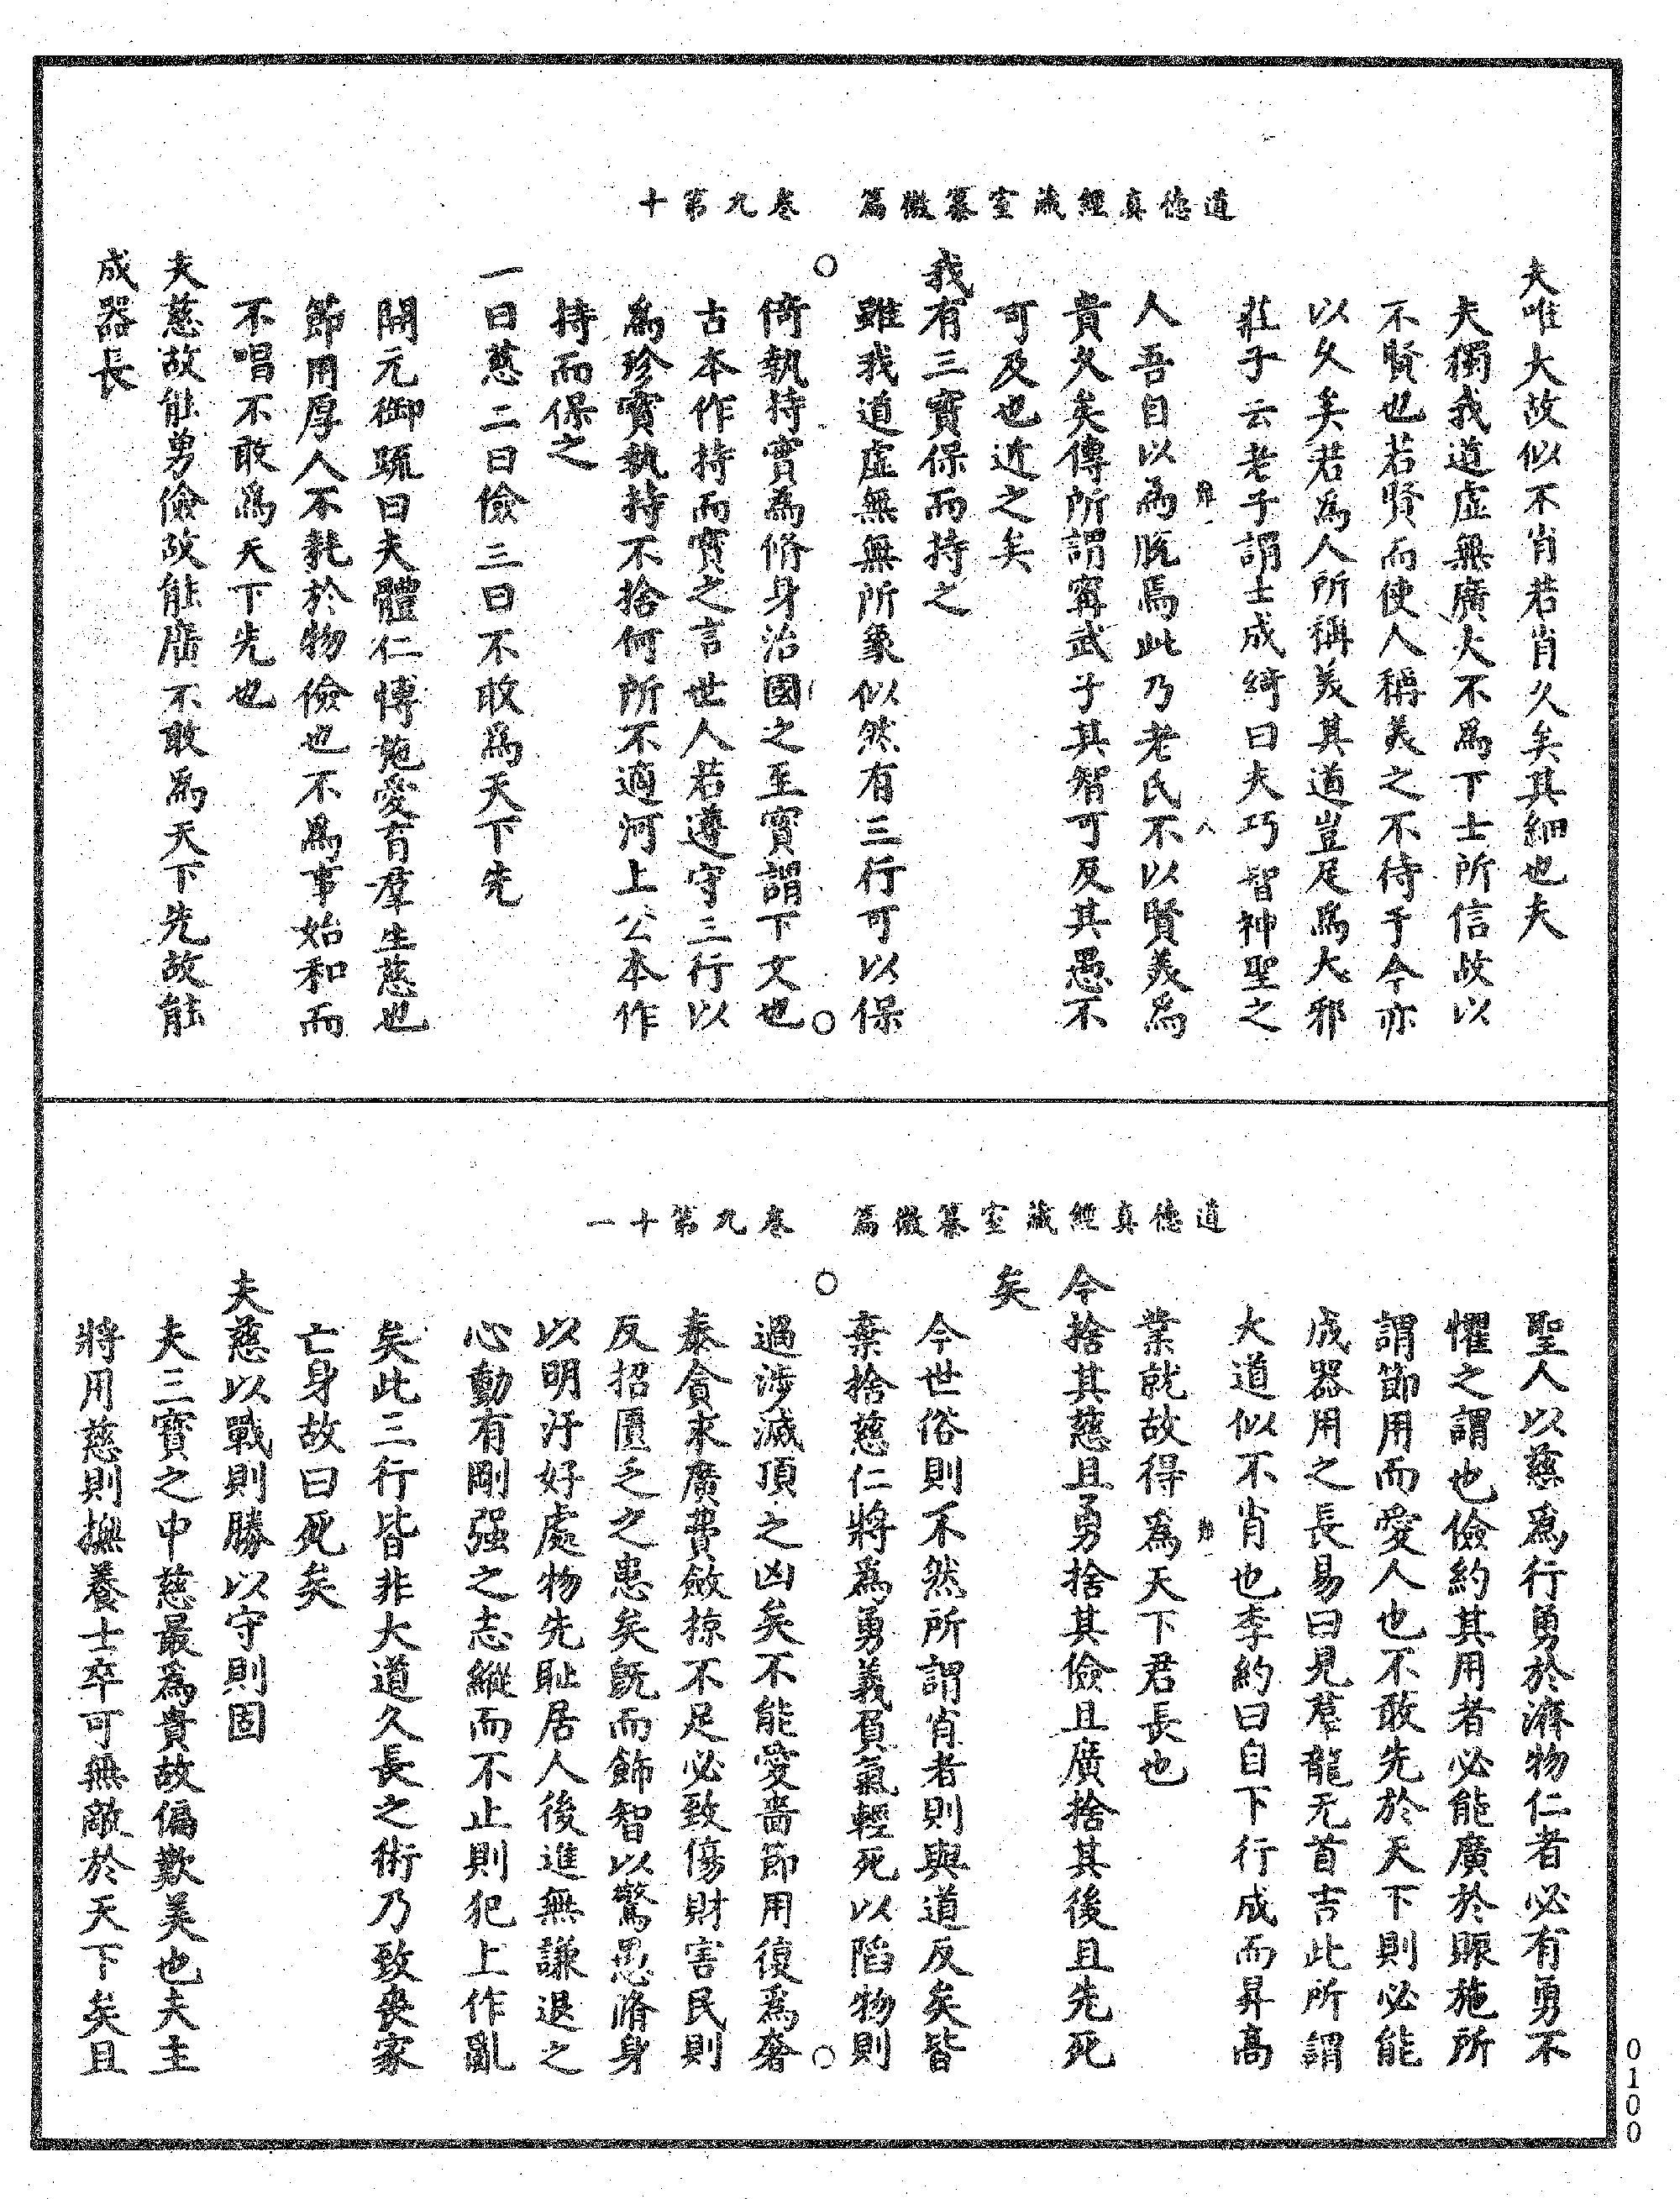 道德真經藏室纂微篇　卷九第十
夫唯大故似不肖若肖久矣其細也夫
夫獨我道虛無廣大不爲下士所信故以
不賢也若賢而使人稱美之不待于今亦
以久矣若爲人所稱美其道豈足爲大邪
莊子云老子謂士成綺曰夫巧智神聖之
人吾自以爲脫焉此乃老氏不以賢美爲
貴久矣傳所謂甯武子其智可及其愚不
可及也近之矣
我有三寶保而持之
雖我道虛無無所象似然有三行可以保
倚執持實爲脩身治國之至寶謂下文也
古本作持而寶之言世人若遵守三行以
爲珍寶執持不捨何所不適河上公本作
持而保之
一曰慈二曰儉三曰不敢爲天下先
開元御疏曰夫體仁博施愛育羣生慈也
節用厚人不耗於物儉也不爲事始和而
不唱不敢爲天下先也
夫慈故能勇儉故能廣不敢爲天下先故能
成器長
道德真經藏室纂微篇　卷九第十一
聖人以慈爲行勇於濟物仁者必有勇不
懼之謂也儉約其用者必能廣於賑施所
謂節用而愛人也不敢先於天下則必能
成器用之長易曰見羣龍无首吉此所謂
大道似不肖也李約曰自下行成而昇高
業就故得爲天下君長也
今捨其慈且勇捨其儉且廣捨其後且先死
矣
今世俗則不然所謂肖者則與道反矣皆
棄捨慈仁將爲勇義負氣輕死以陷物則
過涉滅頂之凶矣不能愛嗇節用復爲奢
泰貪求廣費斂掠不足必致傷財害民則
反招匱乏之患矣旣而飾智以驚愚脩身
以明汙好處物先恥居人後進無謙退之
心動有剛强之志縱而不止則犯上作亂
矣此三行皆非大道久長之術乃致喪家
亡身故曰死矣
夫慈以戰則勝以守則固
夫三寶之中慈最爲貴故偏歎美也夫主
將用慈則撫養士卒可無敵於天下矣且
0100